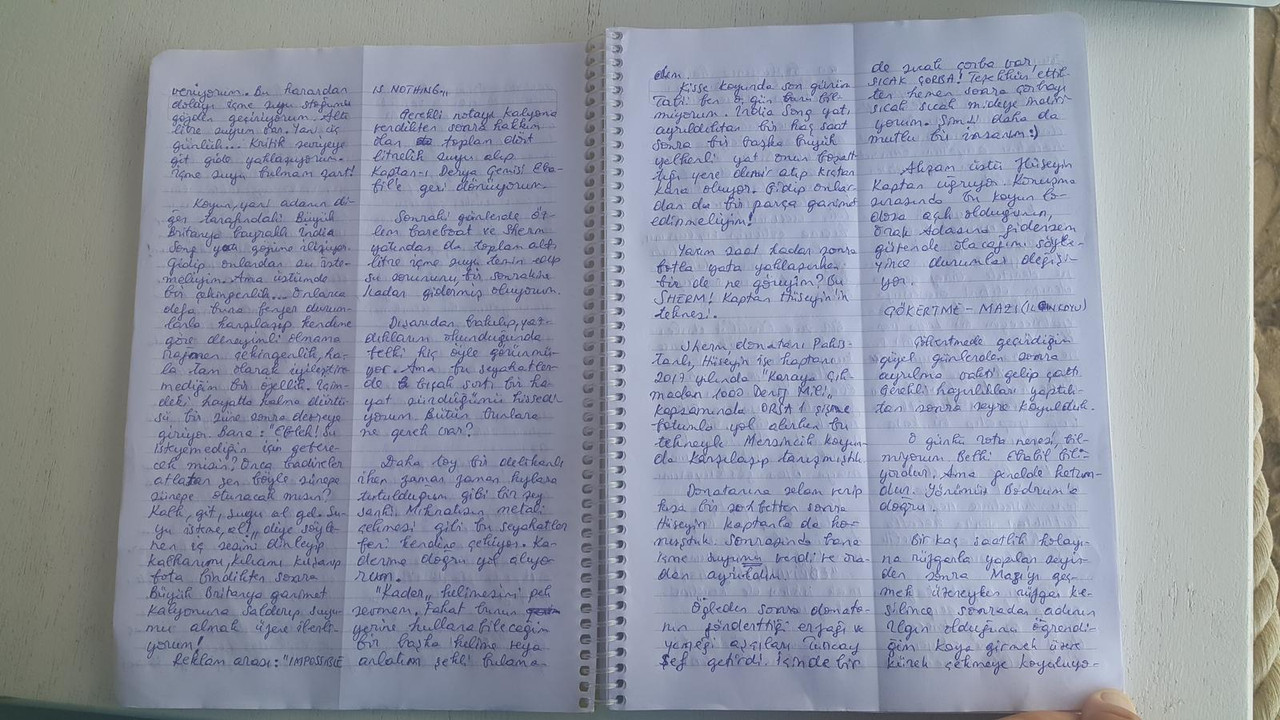 veriyorum. Bu karardan
dolayı içme suyu stoğumu
gözden geçiriyorum. Altı
litre suyum var. Yani üç
günlük... Kritik seviyeye
git gide yaklaşıyorum.
İçme suyu bulmam şart!
Koyun, yarı adanın di-
ğer tarafındaki Büyük
Britanya bayraklı India
Song yatı gözüme ilişiyor.
Gidip onlardan su iste-
meliyim. Ama üstümde
bir çekingenlik... Onlarca
defa buna benzer durum-
larla karşılaşıp kendime
göre deneyimli olmama
rağmen çekingenlik, ha-
la tam olarak iyileştire-
mediğim bir özellik. İçim-
deki hayatta kalma dürtü-
sü bir süre sonra devreye
giriyor. Bana: "Ebleh! Su
istiyemediğin için gebere-
cek misin? Onca badireler
atlatan sen böyle sünepe
sünepe oturacak mısın?
Kalk, git, suyu al gel. Su-
yu isteme, al!" diye söyle-
nen iç sesimi dinleyip
kalkarım, kılıcımı kuşanıp
bota bindikten sonra
Büyük Britanya ganimet
kalyonuna saldırıp suyu-
mu almak üzere ilerli-
yorum!
Reklam arası: "IMPOSSIBLE
IS NOTHING"
Gerekli notayı kalyona
verdikten sonra hakkım
olan toplam dört
litrelik suyu alıp
Kaptan-ı Derya Gemisi Eba-
bil'e geri dönüyorum.
Sonraki günlerde Öz-
lem bareboat ve Sherm
yatından da toplam altı
litre içme suyu temin edip
su sorununu, bir sonrakine
kadar gidermiş oluyorum.
Dışarıdan bakılıp, yaz-
dıklarım okunduğunda
belki hiç öyle görünmü-
yor. Ama bu seyahatler-
de bıçak sırtı bir ha-
yat sürdüğümü hissedi-
yorum. Bütün bunlara
ne gerek var?
Daha toy bir delikanlı
iken zaman zaman kızlara
tutulduğum gibi bir şey
sanki. Mıknatısın metali
çekmesi gibi bu seyahatler
beni kendine çekiyor. Ka-
derime doğru yol alıyo-
rum.
"Kader" kelimesini pek
sevmem. Fakat bunun
yerine kullanabileceğim
bir başka kelime veya
anlatım şekli bulama-
dım.
Kisse koyunda son günüm
Tabi ben o gün bunu bil-
miyorum. India Song yatı
ayrıldıktan bir kaç saat
sonra bir başka büyük
yelkenli yat onun boşalt-
tığı yere demir atıp kıçtan
kara oluyor. Gidip onlar-
dan da bir parça ganimet
edinmeliyim!
Yarım saat kadar sonra
botla yata yaklaşırken
bir de ne göreyim? Bu
SHERM! Kaptan Hüseyin'in
teknesi.
Sherm donatanı Pakis-
tanlı, Hüseyin ise kaptanı
2017 yılında "Karaya Çık-
madan 1000 Deniz Mili"
kapsamında ORSA 1 şişme
botumla yol alırken bu
tekneyle Mersincik koyun-
da karşılaşıp tanışmıştık.
Donatanına selam verip
kısa bir sohbetten sonra
Hüseyin kaptanla da ko-
nuştuk. Sonrasında bana
içme suyumu verdi ve ora-
dan ayrıldım.
Öğleden sonra donata-
nın gönderttiği erzağı ve
yemeği aşçıları Tuncay
Şef getirdi. İçinde bir
de sıcak çorba var,
SICAK ÇORBA! Teşekkür ettik-
ten hemen sonra çorbayı
sıcak sıcak mideye indiri-
yorum. Şimdi daha da
mutlu bir insanım:)
Akşam üstü Hüseyin
Kaptan uğruyor. Konuşma
sırasında bu koyun lo-
dosa açık olduğunu,
Orak Adasına gidersem
güvende olacağımı söyle-
yince durumlar değişi-
yor.
ÇÖKERTME - MAZI (ILGIN KOYU)
Çökertmede geçirdiğim
güzel günlerden sonra
ayrılma vakti gelip çattı
Gerekli hazırlıkları yaptık-
tan sonra seyre koyulduk.
O günkü rota neresi, bil-
miyorum. Belki Ebabil bili-
yordur. Ama genelde ketum-
dur. Yönümüz Bodrum'a
doğru.
Bir kaç saatlik kolayı-
na rüzgarla yapılan seyir-
den sonra Mazıyı geç-
mek üzereyken rüzgar ke-
silince sonradan adının
Ilgın olduğunu öğrendi-
ğim koya girmek üzere
kürek çekmeye koyuluyo-